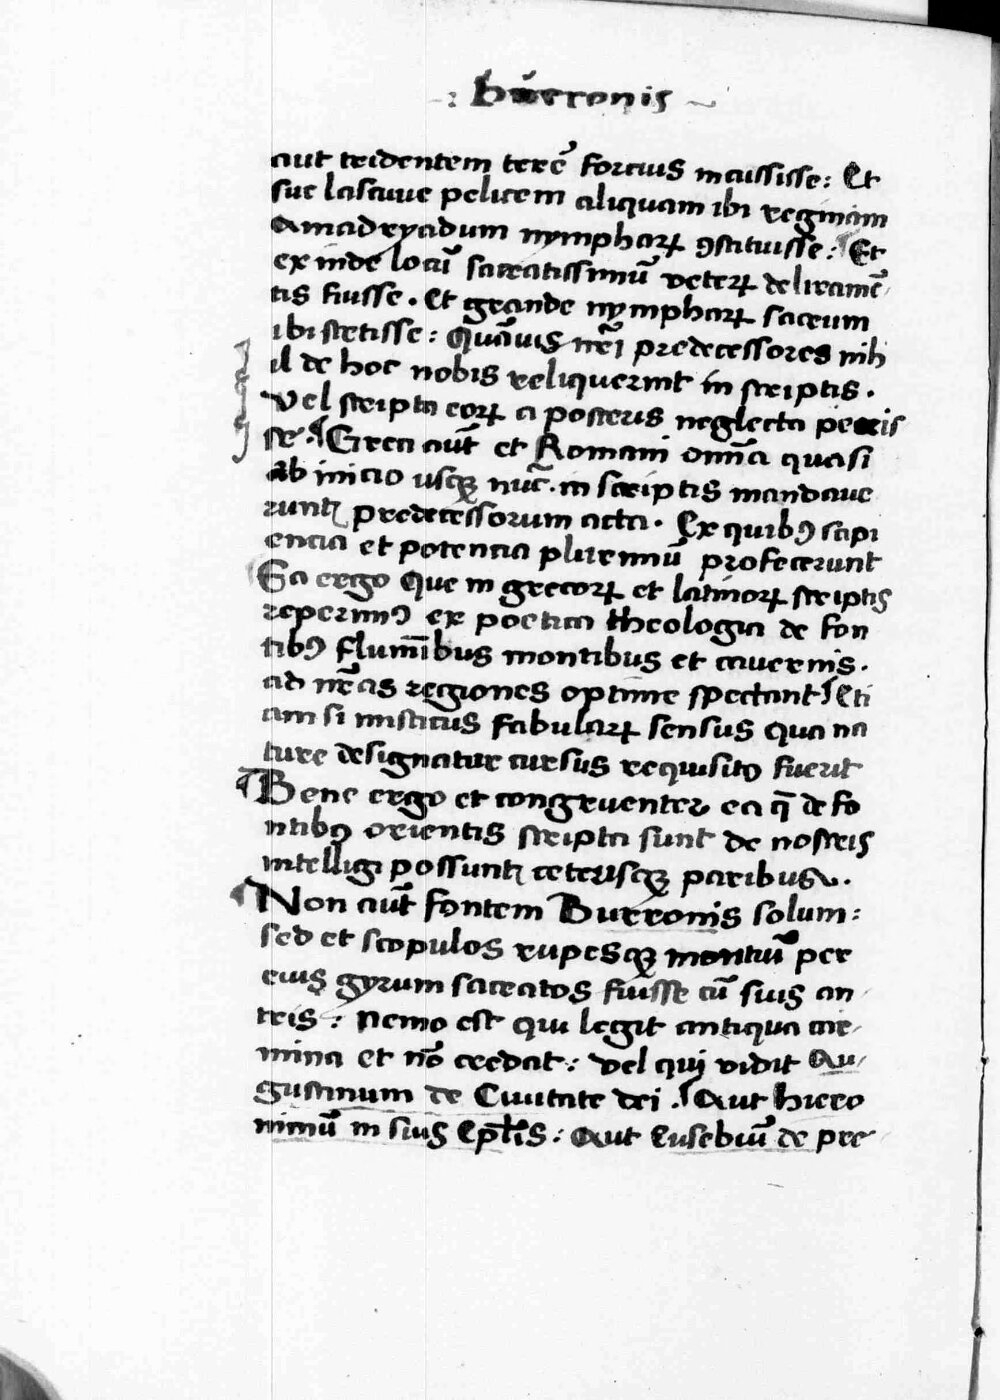 : Burronis ~
aut tridentem terrē forcius incussisse: Et
sue lascivie pelicem aliquam ibi reginam
Amadryadum nympharꝝ ꝯstituisse: Et
ex inde locū sacratissimū veterꝝ deliramē
tis fuisse. Et grande nympharꝝ sacrum
ibi stetisse: Quāvis nr̄i predecessores nih
il de hoc nobis reliquerint in scriptis.
Vel scripta eorꝝ a posteris neglecta periis
se. Greci aūt et Romani om̄ia quasi
ab inicio usqꝫ nūc. in scriptis mandave
runt predecessorum acta. Ex quibꝯ sapi
encia et potencia plurimū profecerunt
Ea ergo que in grecorꝝ et latinorꝝ scriptis
reperimꝯ ex poetica theologia de fon
tibꝯ flumībus montibus et cavernis.
ad nr̄as regiones optime spectant Eti
am si misticus fabularꝝ sensus qua na
ture designatur cursus requisitꝯ fuerit
Bene ergo et congruenter ea q̄ de fo
ntibꝯ orientis scripta sunt de nostris
intelligi possunt ceterisqꝫ paribus.
Non aūt fontem Burronis solum:
sed et scopulos rupesqꝫ montiū per
eius gyrum sacratos fuisse cū suis an
tris: Nemo est qui legit antiqua car
mina et nō credat: vel qui vidit Au
gustinum de Civitate dei. Aut hiero
nimū in suis Epl̄is: Aut Eusebiū de pre